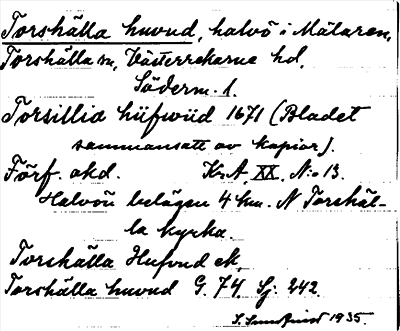 Torshälla huvud, halvö i Mälaren,
Torshälla sn, Västerrekarne hd,
Söderm. l.
Torsillia hüfwüd 1671 (Bladet
sammansatt av kopior).
Förf. okd. K.A. XX. N:o 13.
Halvön belägen 4 km. N Torshäl-
la kyrka.
Torshälla Hufvud ek.
Torshälla huvud G. 74 Sj. 242.
S. Sundquist 1935.